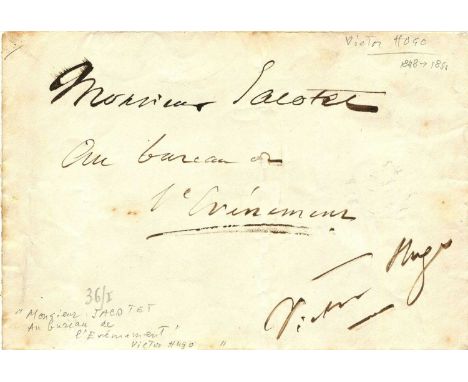 Victor HUGO
1848 → 1851
Monsieur Jacottet
Au bureau de
l'Evénement
Victor Hugo
36/I
" Monsieur JACOTET
Au bureau de
l'Evénement
Victor Hugo "